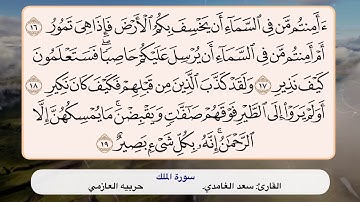 ءَأَمِنتُم مَّن فِى ٱلسَّمَآءِ أَن يَخْسِفَ بِكُمُ ٱلْأَرْضَ فَإِذَا هِىَ تَمُورُ ١٦
أَمْ أَمِنتُم مَّن فِى ٱلسَّمَآءِ أَن يُرْسِلَ عَلَيْكُمْ حَاصِبًا ۖ فَسَتَعْلَمُونَ
كَيْفَ نَذِيرِ ١٧ وَلَقَدْ كَذَّبَ ٱلَّذِينَ مِن قَبْلِهِمْ فَكَيْفَ كَانَ نَكِيرِ ١٨
أَوَلَمْ يَرَوْا۟ إِلَى ٱلطَّيْرِ فَوْقَهُمْ صَٰٓفَّٰتٍ وَيَقْبِضْنَ ۚ مَا يُمْسِكُهُنَّ إِلَّا
ٱلرَّحْمَٰنُ ۚ إِنَّهُۥ بِكُلِّ شَىْءٍۭ بَصِيرٌ ١٩
سورة الملك
القارئ: سعد الغامدي.
حربيه العازمي